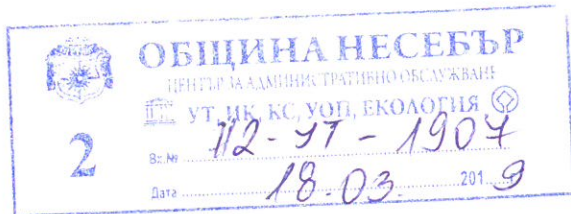 ОБЩИНА НЕСЕБЪР
ЦЕНТЪР ЗА АДМИНИСТРАТИВНО ОБСЛУЖВАНЕ
УТ, ИК, КС, УОП, ЕКОЛОГИЯ
2
Вх.№ Н2-УТ-1907
Дата 18.03. 2019